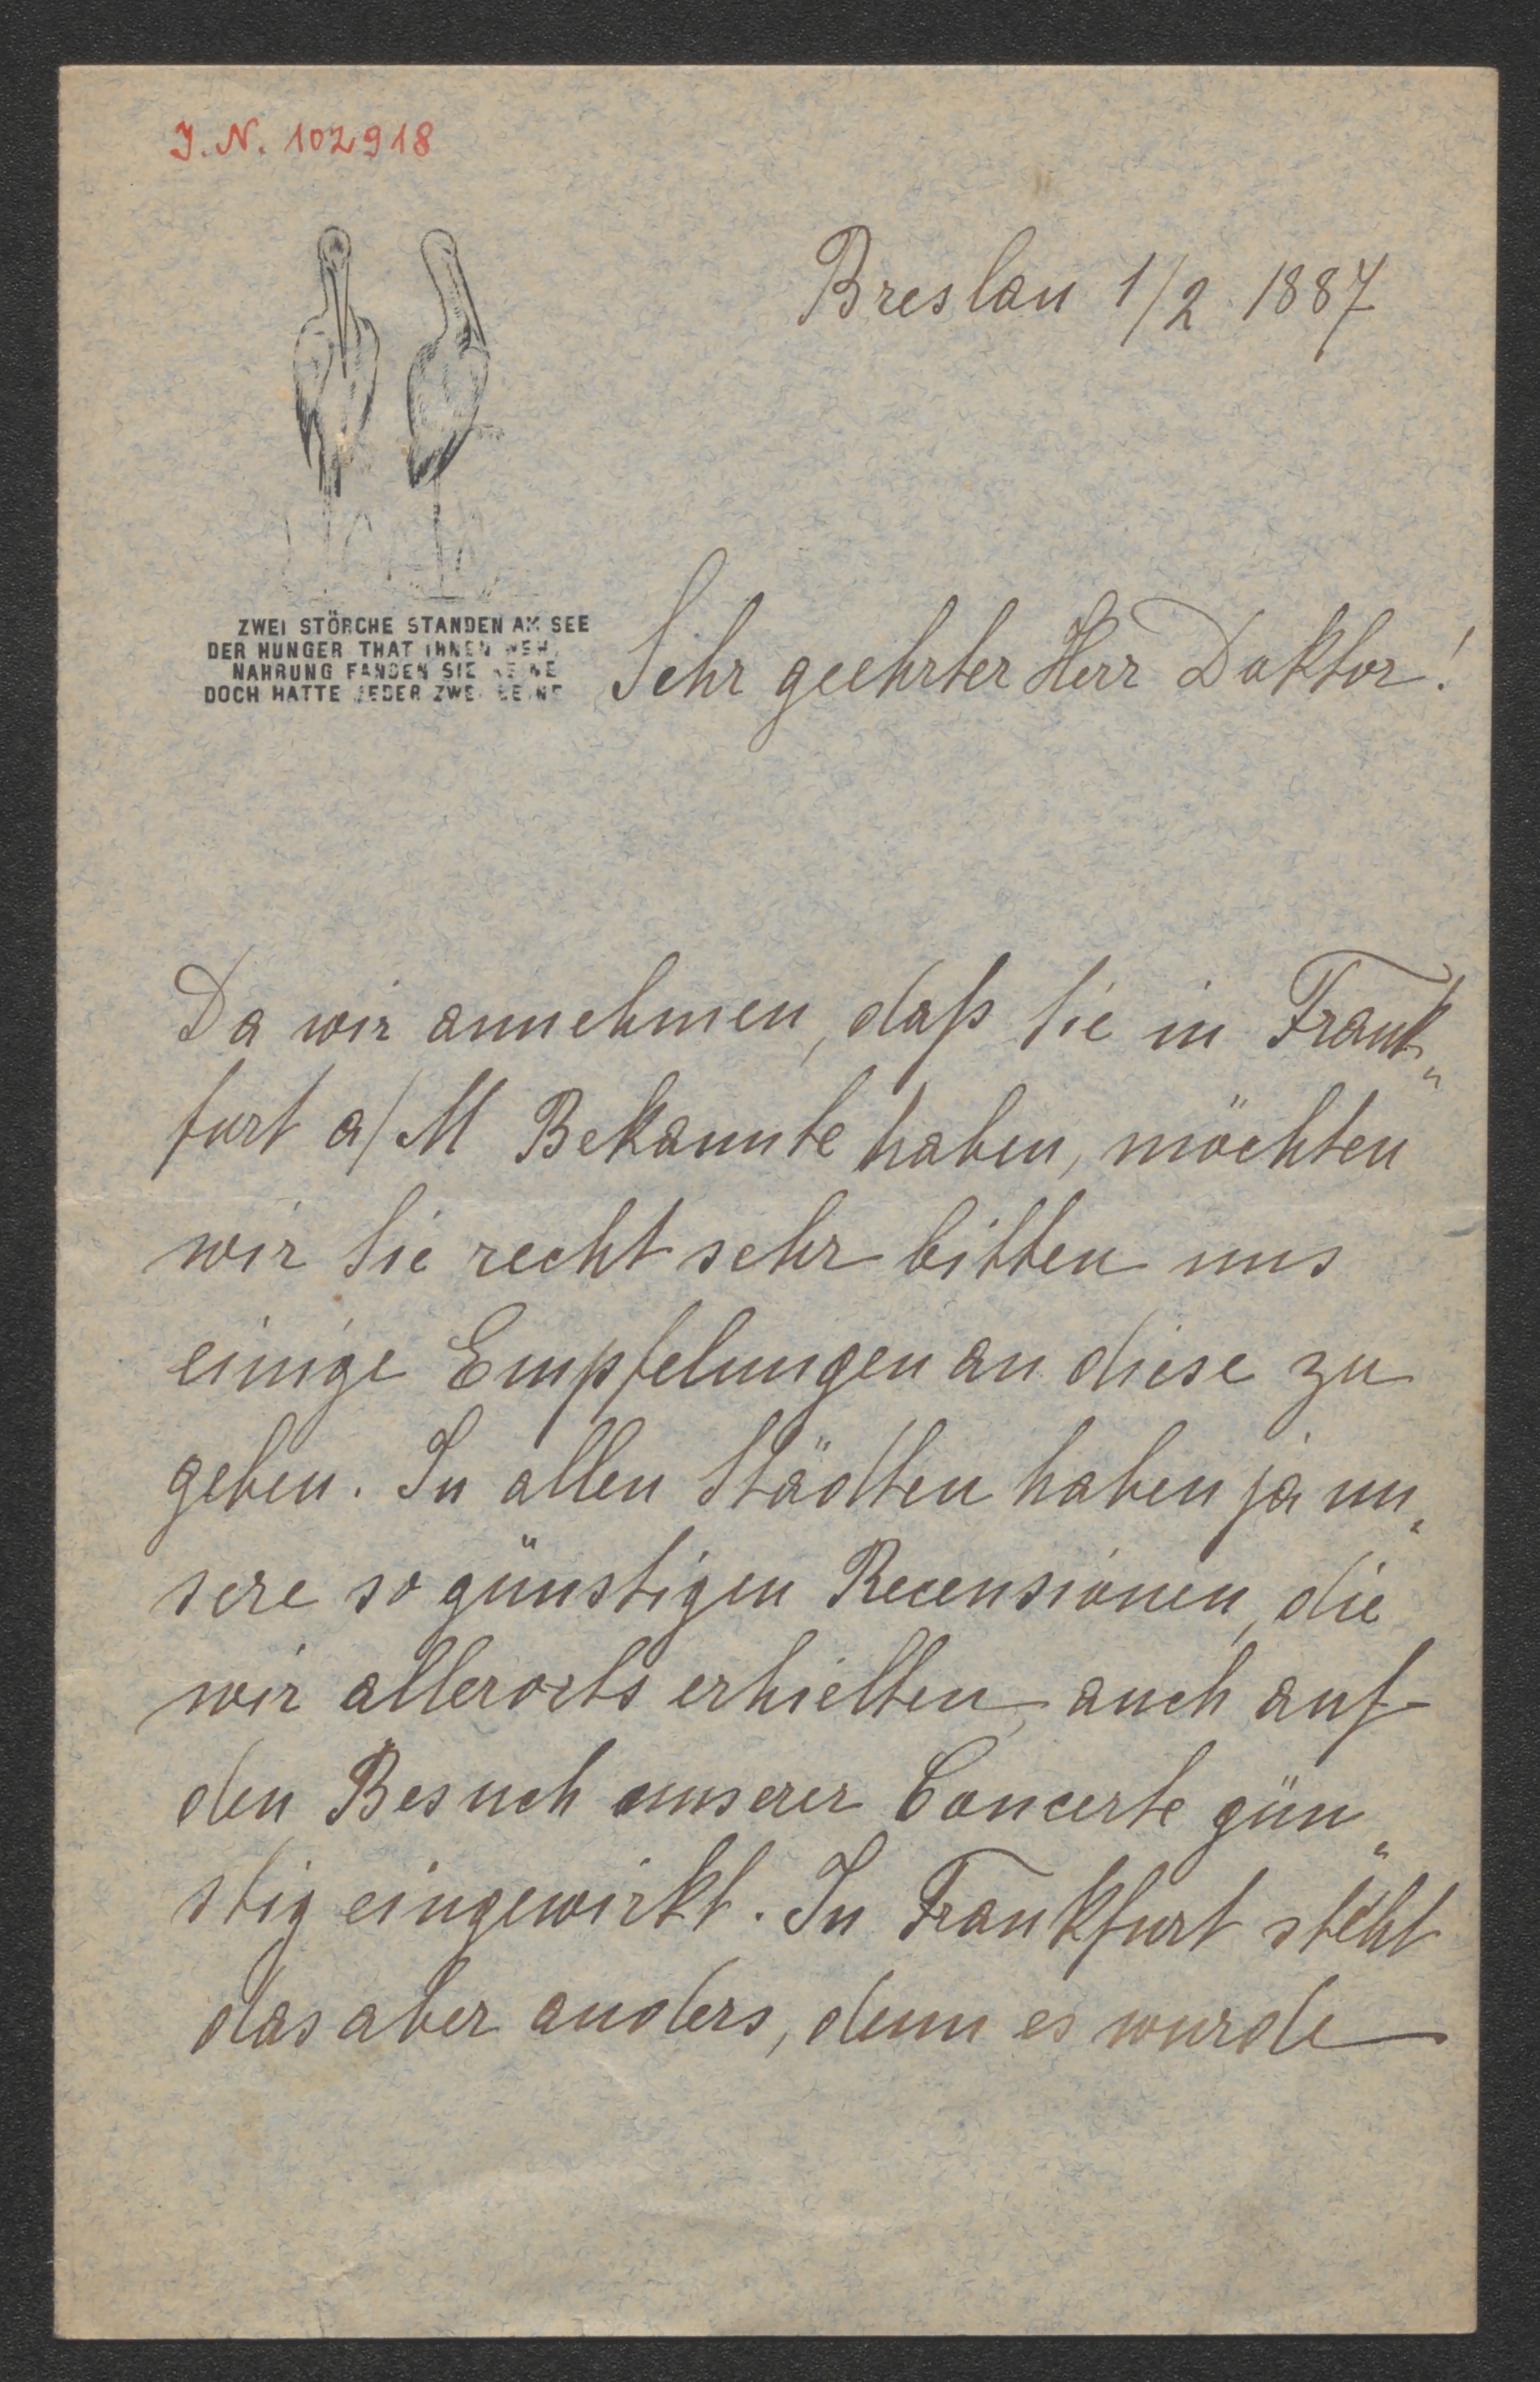 J. N. 102918
Breslau 1/2 1887
ZWEI STÖRCHE STANDEN AM SEE
DER HUNGER THAT IHNEN WEH,
NAHRUNG FANDEN SIE KEINE
DOCH HATTE JEDER ZWEI BEINE
Sehr geehrter Herr Doktor!
Da wir annehmen, daß Sie in Frank„
furt a/M Bekannte haben, möchten
wir Sie recht sehr bitten uns
einige Empfelungen an diese zu
geben. In allen Städten haben ja un„
sere so günstigen Recensionen, die
wir allerorts erhielten, auch auf
den Besuch unserer Concerte gün„
stig eingewirkt. In Frankfurt steht
das aber anders, denn es wurde